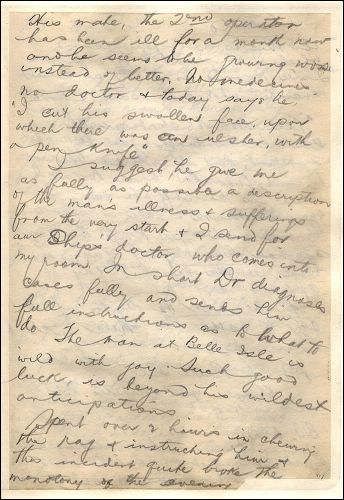 His mate, the 2nd operator
has been ill for a month now
and he seems to be growing worse
instead of better. No medecines
no doctor & today says he
"I cut his swollen face, upon
which there was an ulsher, with
a pen knife"
I suggest he give me
as fully as possible a description
of the man's illness & sufferings
from the very start & I send for
our Ships doctor who comes into
my room. In short Dr diagnoses
cases fully and sends him
full instructions as to what to
do.
The man at Belle Isle is
wild with joy. Such good
luck, is beyond his wildest
anticipations
Spent over 2 hours in chewing
the rag & instructing him &
this incident quite broke the
monotony of the evening